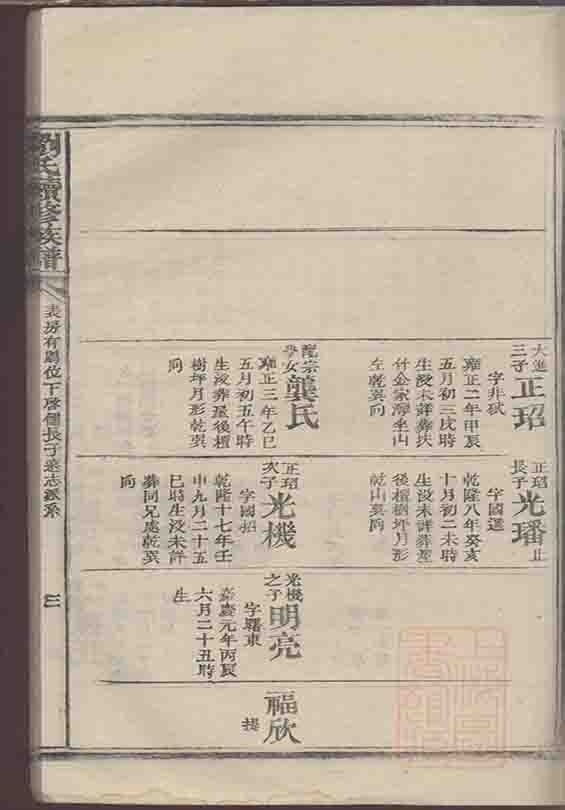 大進
三子
正玿
字非弒
雍正二年甲辰
五月初三戌時
生沒未詳葬扶
什仚家灣坐山
左乾巽向
配宗
學女
龔氏
雍正三年乙巳
五月初五午時
生沒葬屋後檀
樹坪月形乾巽
向
正玿
長子
光璠
止
字國選
乾隆八年癸亥
十月初二未時
生沒未詳葬屋
後檀樹坪月形
乾山巽向
正玿
次子
光機
字國招
乾隆十七年壬
申九月二十五
巳時生沒未詳
葬同兄處乾巽
向
光機
之子
明亮
字曙東
嘉慶元年丙辰
六月二十丑時
生
福欣
提
劉氏續修族譜
表房有鵬位下啓個長子志派系
三